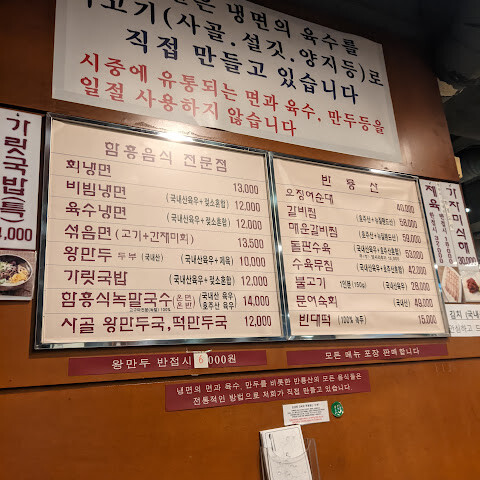 은 냉면의 육수를
고기(사골.설깃.양지등)로
직접 만들고 있습니다
시중에 유통되는 면과 육수, 만두등을
일절 사용하지 않습니다
가릿국밥(특
함흥음식 전문점
회냉면 13,000
비빔냉면 (국내산육우+젖소혼합) 12,000
육수냉면 (국내산육우+젖소혼합) 12,000
섞음면 (고기+간재미회) 13,500
왕만두 두부 (국내산) (국내산육우+제육) 10,000
가릿국밥 (국내산육우+젖소혼합) 12,000
함흥식녹말국수 (온면 온반) (국내산 육우 호주산 육우) 14,000
사골 왕만두국,떡만두국 12,000
반룡산
오징어순대 40,000
갈비찜 (호주산+뉴질랜드산) 58,000
매운갈비찜 (호주산+뉴질랜드산) 59,000
돌판수육 (국내산육우+호주산) 53,000
수육무침 (국내산육우+호주산) 42,000
불고기 1인분 (150g) (국내산육우) 28,000
문어숙회 (국내산) 49,000
빈대떡 (100% 녹두) 15,000
제육
가자미식해
왕만두 반접시 6,000원
모든 메뉴 포장 판매합니다
냉면의 면과 육수, 만두를 비롯한 반룡산의 모든 음식들은
전통적인 방법으로 저희가 직접 만들고 있습니다.